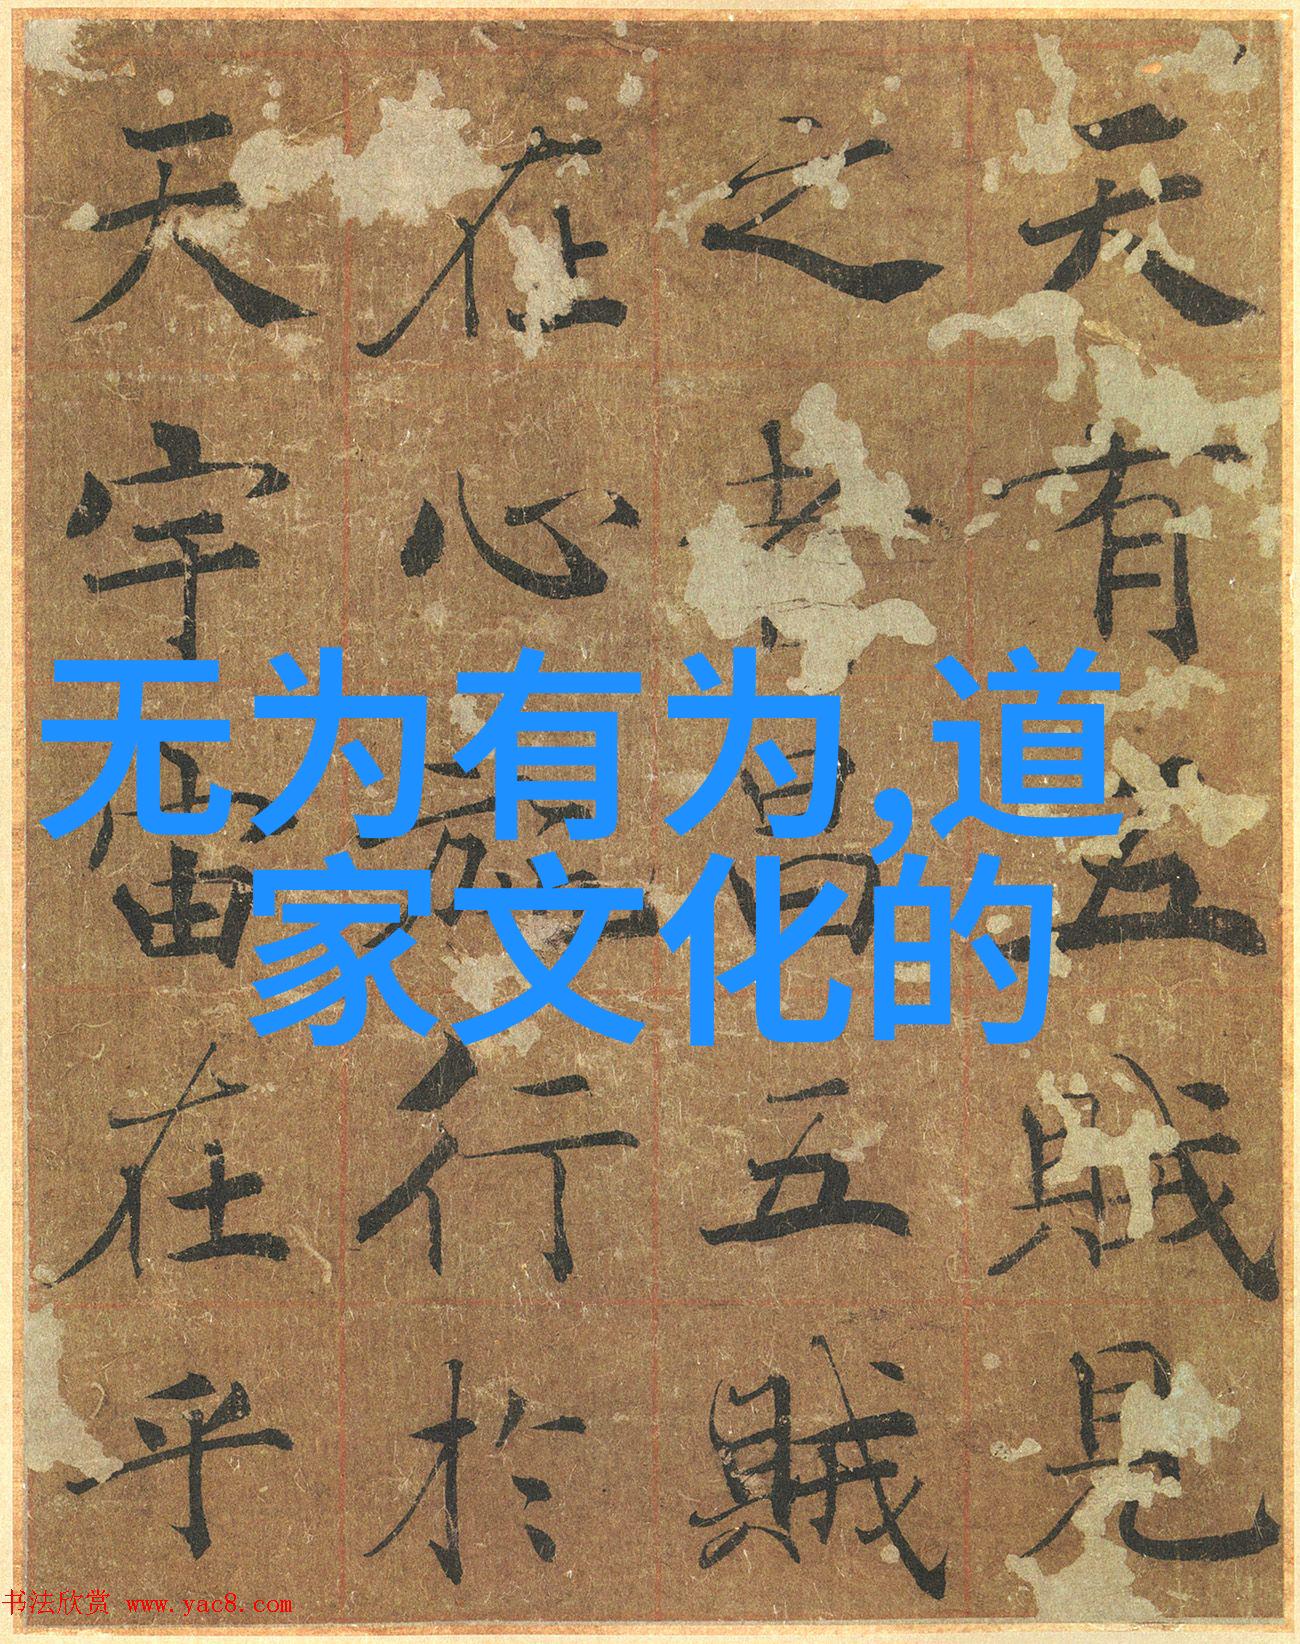 天有五賊見
之者昌五賊
在心施行於
天宇宙在乎
无为有为,道
家文化的
书法欣赏 www.yac8.com